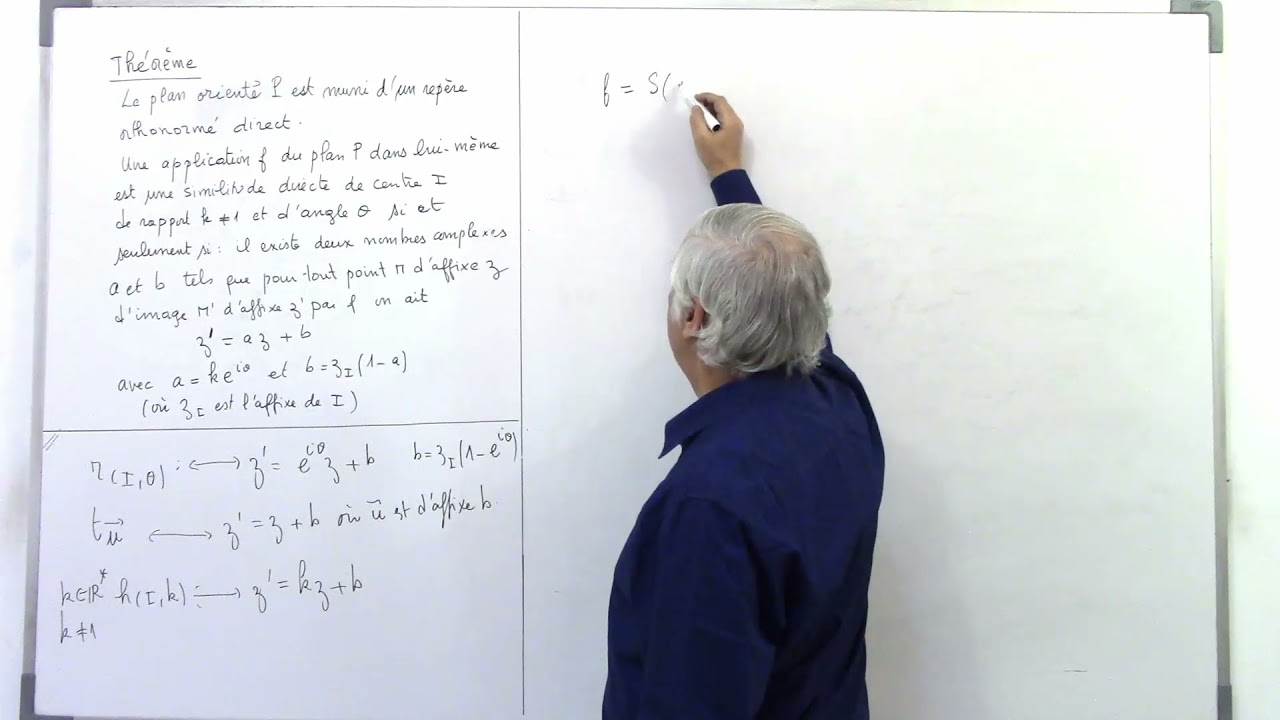 Théorème
Le plan orienté P est muni d'un repère
orthonormé direct.
Une application f du plan P dans lui-même
est une similitude directe de centre I
de rapport k ≠ 1 et d'angle θ si et
seulement si : il existe deux nombres complexes
a et b tels que pour tout point M d'affixe z
d'image M' d'affixe z' par f on ait
z' = az + b
avec a = ke^{iθ} et b = z_I(1-a)
(où z_I est l'affixe de I)
r(I,θ) : ⟷ z' = e^{iθ}z + b b = z_I(1-e^{iθ})
t_{\vec{u}} ⟷ z' = z + b où \vec{u} est d'affixe b.
k∈ℝ* h(I,k) : ⟶ z' = kz + b
k ≠ 1
f = S(